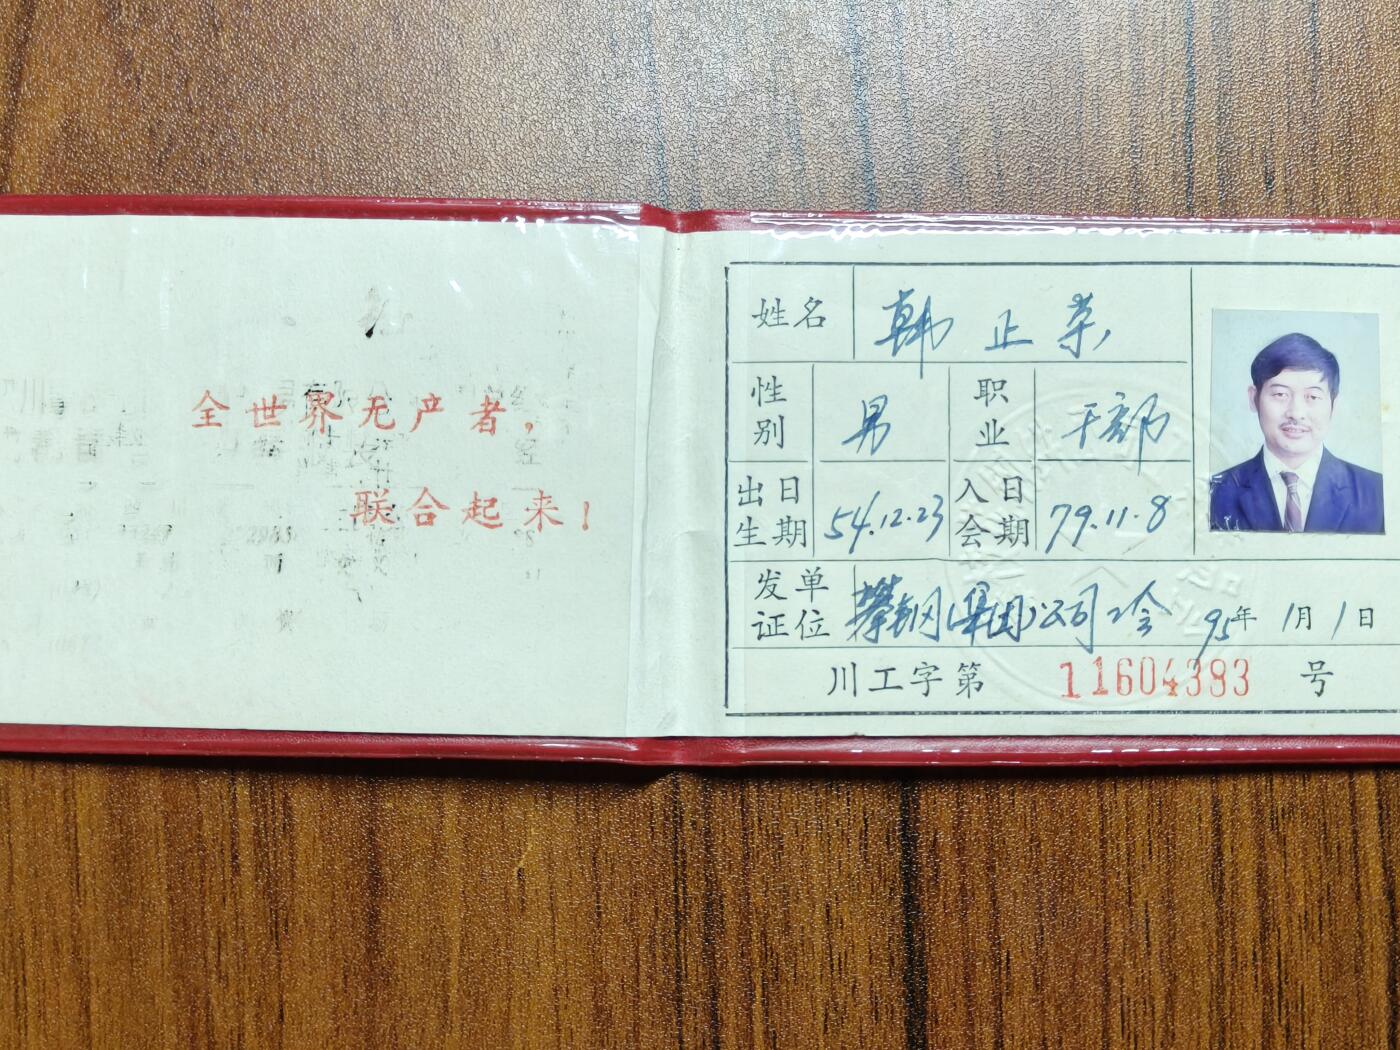 全世界无产者，
联合起来！
姓名 韩正荣
性别 男 职业 干部
出生日期 54.12.23 入会日期 79.11.8
发证单位 攀钢(集团)公司工会 95年1月1日
川工字第 11604383 号